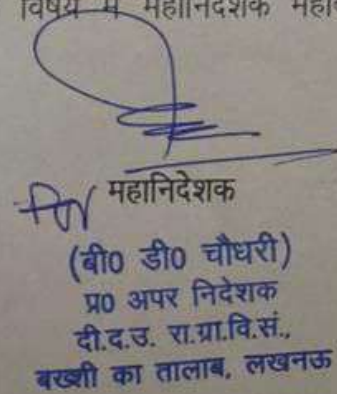 विषय में महानिदेशक
महानिदेशक
(बी0 डी0 चौधरी)
प्र0 अपर निदेशक
दी.द.उ. रा.ग्रा.वि.सं.,
बख्शी का तालाब, लखनऊ